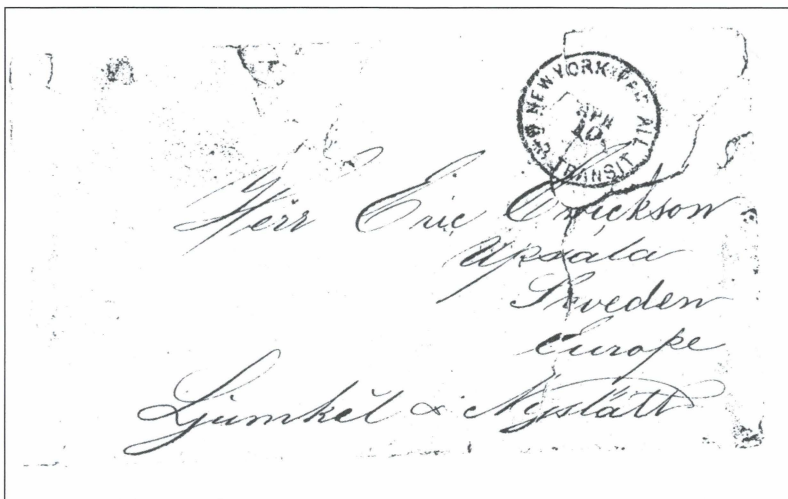 NEW YORK PAID ALL
APR
10
TRANSIT
Herr Eric Erickson
Upsala
Sweden
Europe
Ljumkël & Nyslätt